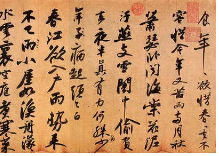 食年〻欲惜春春去不
容惜今年又苦雨兩月秋
蕭瑟卧聞海棠花泥
汙燕支雪闇中偷負
去夜半真有力何殊少
年子病起頭已白
春江欲入戶雨勢來
不已雨小屋如漁舟濛〻
水雲裏空庖煮寒菜